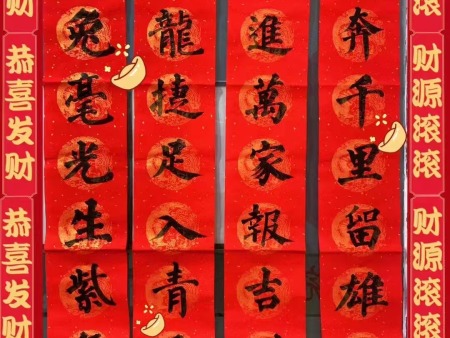 滚
财源滚滚
财源滚滚
奔千里留雄
進萬家報吉
龍捷足入青
兔毫光生紫
财
恭喜发财
恭喜发财